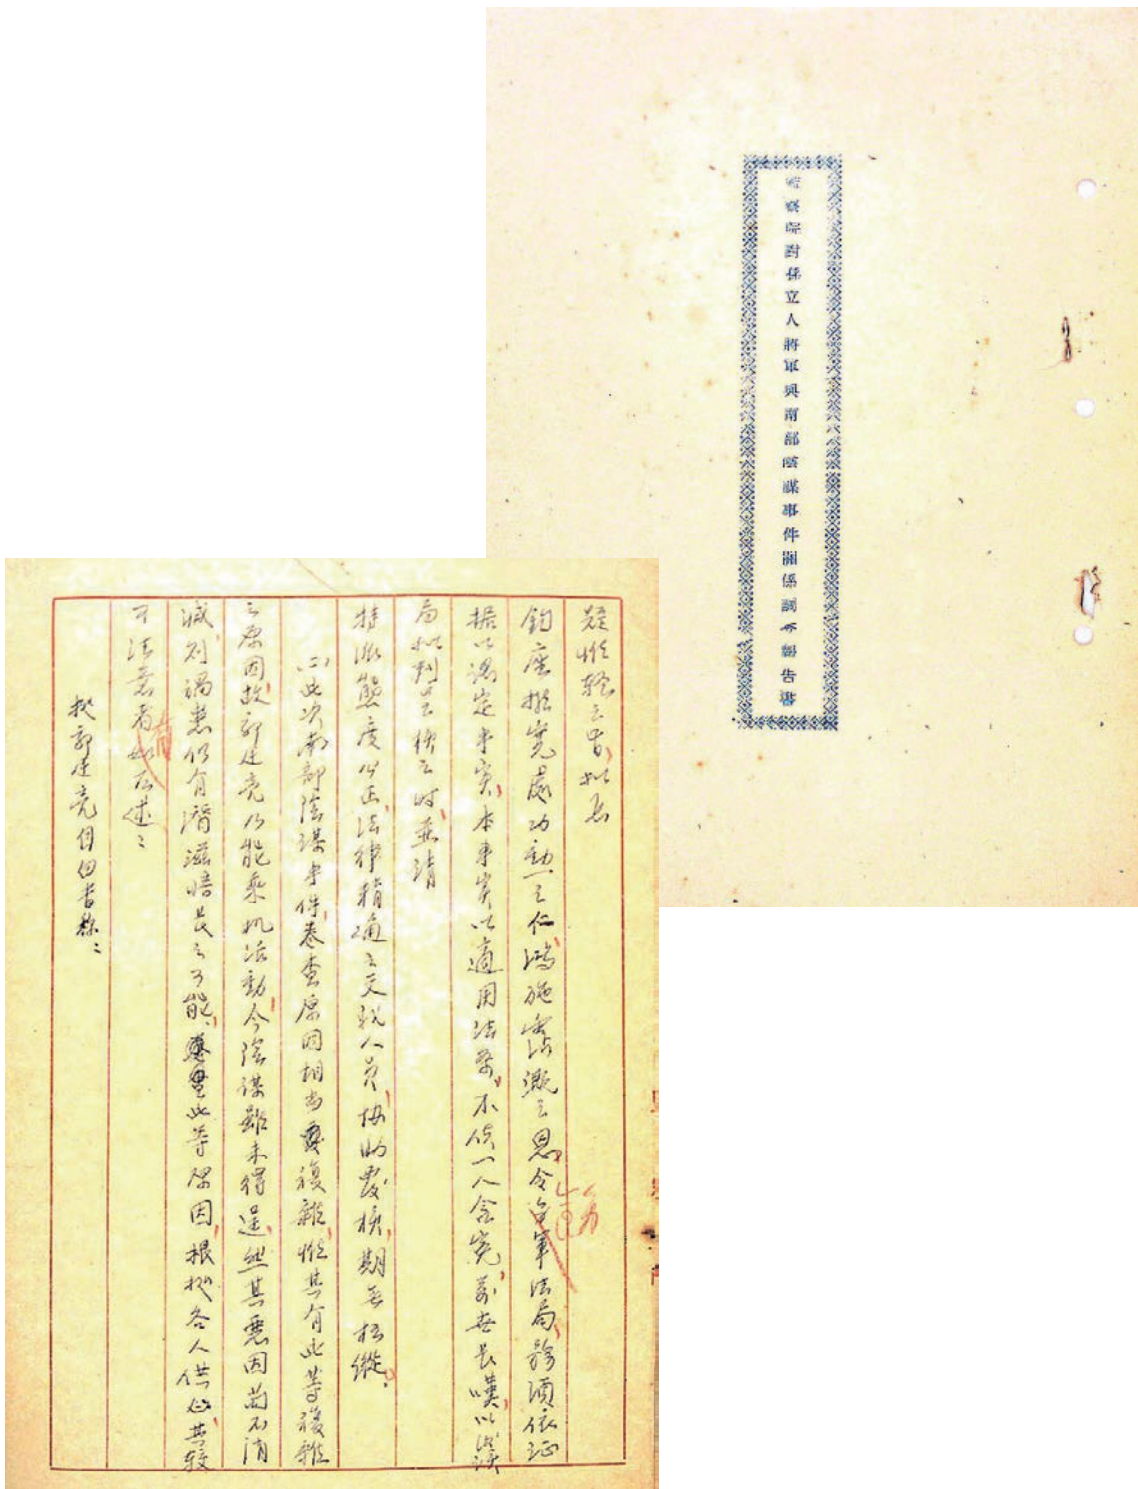 監察院對孫立人將軍與南部陰謀事件關係調查報告書
疑惟輕之旨、擬懇
鈞座推寬處功勳之仁、鴻施霑溉之恩、令軍法局務須依証
据以認定事實、本事實以適用法条、不使一人含冤、萬世長嘆、以該
局拟判呈核之时、並請
特派態度公正、法律精通之文職人員、协助覆核、期無枉縱。
(二)此次南部陰謀事件、卷查原因相当複雜、惟其有此等複雜
之原因、故郭廷亮乃能乘机活動、今陰謀雖未得逞、然其惡因苟不消
滅、則禍患仍有潛滋暗長之可能、此等原因、根據各人供述、其較
可注意者如左述：
授郭廷亮自白書称：